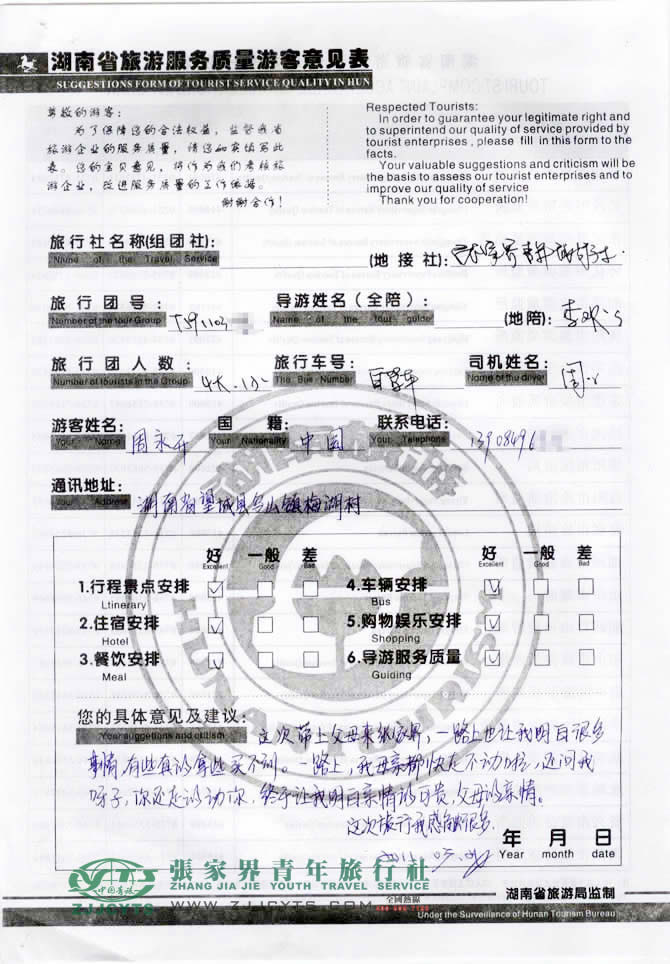 湖南省旅游服务质量游客意见表
SUGGESTIONS FORM OF TOURIST SERVICE QUALITY IN HUN
尊敬的游客:
为了保障您的合法权益,监督我省
旅游企业的服务质量,请您如实填写此
表。您的宝贵意见,将作为我们考核旅
游企业,改进服务质量的工作依据。
谢谢合作!
Respected Tourists:
In order to guarantee your legitimate right and
to superintend our quality of service provided by
tourist enterprises , please fill in this form to the
facts.
Your valuable suggestions and criticism will be
the basis to assess our tourist enterprises and to
improve our quality of service
Thank you for cooperation!
旅行社名称(组团社):
Name of the Travel Service
(地接社): 张家界青年旅行社
旅行团号:
Number of the tour Group
导游姓名(全陪):
Name of the tour guide
(地陪):
旅行团人数:
Number of tourists in the Group
旅行车号:
The Bus Number
司机姓名:
Name of the driver
周
游客姓名: 周永开
Your Name
国籍: 中国
Your Nationality
联系电话: 1390849
Your Telephone
通讯地址: 湖南省望城县乌山镇梅湖村
Your Address
好 一般 差
Excellent Good Bad
好 一般 差
Excellent Good Bad
1.行程景点安排
Ltinerary
4.车辆安排
Bus
2.住宿安排
Hotel
5.购物娱乐安排
Shopping
3.餐饮安排
Meal
6.导游服务质量
Guiding
您的具体意见及建议:
Your suggetions and critism
这次带上父母来张家界,一路上也让我明白很多
事情,有些有钱拿些买不到。一路上,我母亲都快走不动啦,还问我
终于让我明白亲情的可贵,父母的亲情。
这次旅行我感触很多.
2011.03.
年 月 日
Year month date
張家界青年旅行社
ZHANG JIA JIE YOUTH TRAVEL SERVICE
中國青旅
ZJJCYTS
WWW.ZJJCYTS.COM
全國熱線
湖南省旅游局监制
Under the Surveillance of Hunan Tourism Bureau